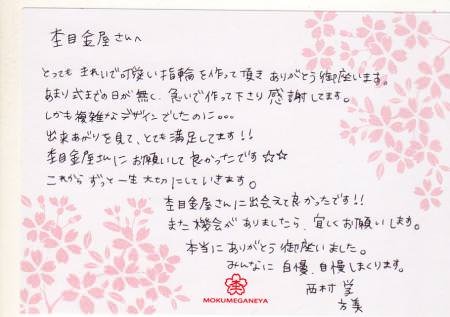 杢目金屋さんへ
とっても きれいで可愛い指輪を作って頂き ありがとう御座います。
あまり式までの日が無く、急いで作って下さり 感謝してます。
しかも複雑なデザインでしたのに…
出来あがりを見て、とても満足してます!!
杢目金屋さんに お願いして 良かったです☆☆
これから ずっと一生 大切にしていきます。
杢目金屋さんに出会えて良かったです!!
また機会が ありましたら、宜しくお願いします。
本当に ありがとう 御座いました。
みんなに 自慢、自慢しまくります。
西村 学
杢
MOKUMEGANEYA